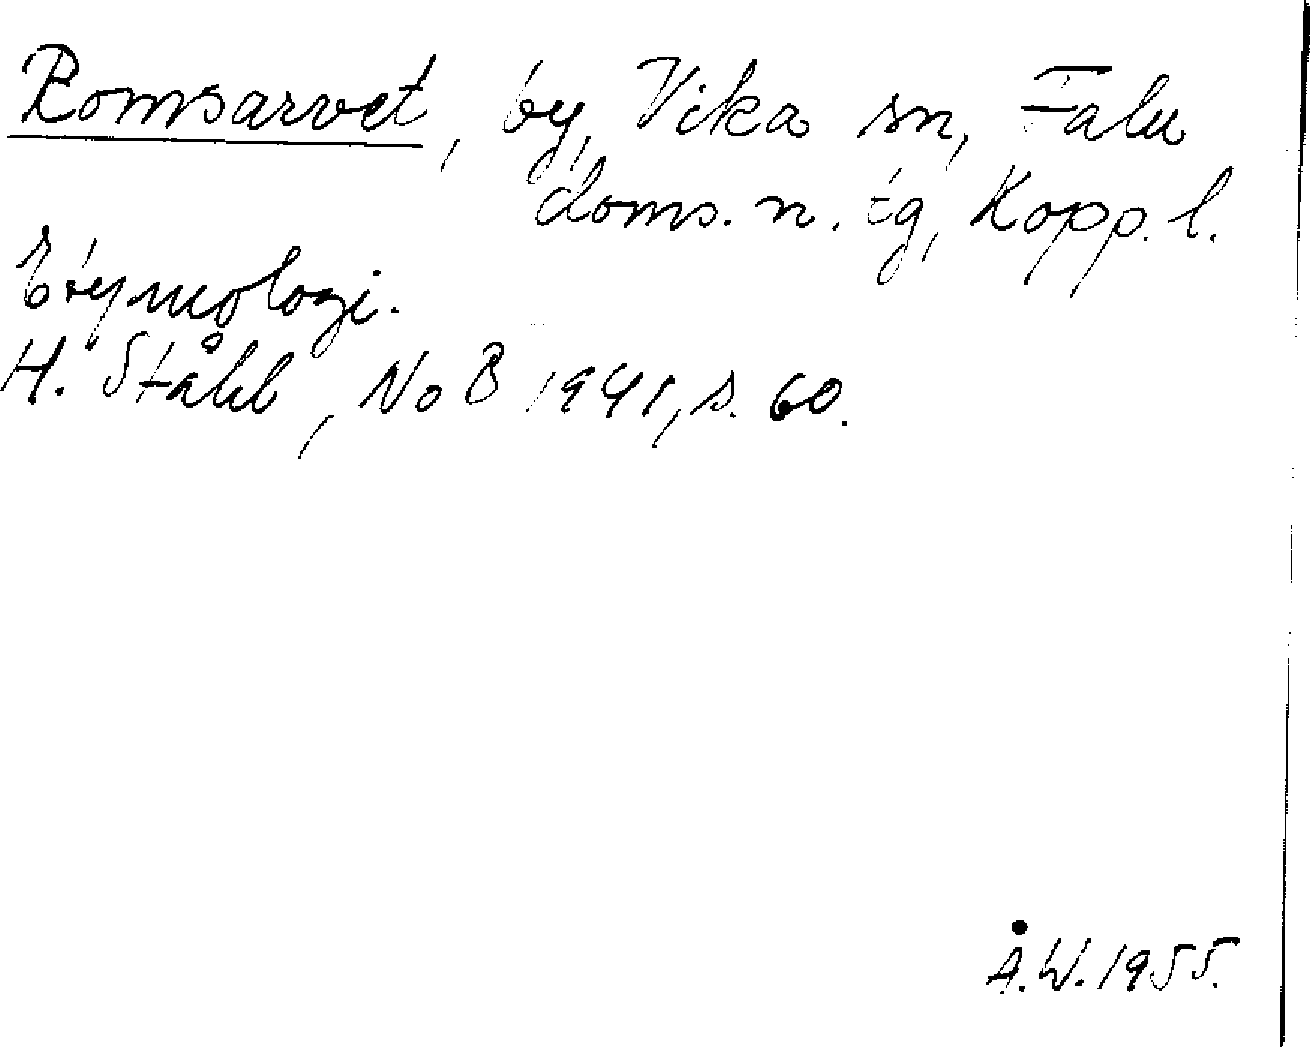 Romsarvet, by, Vika sn, Falu
doms. n. tg, Kopp. l.
Etymologi.
H. Ståhl, NoB 1941, s. 60.
Å.W. 1955.